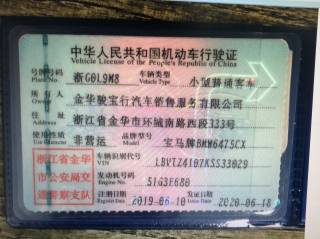 中华人民共和国机动车行驶证
Vehicle License of the People's Republic of China
号牌号码 浙G0L9M8 车辆类型 Vehicle Type 小型普通客车
Plate No.
所有人 金华骏宝行汽车销售服务有限公司
Owner
住址 浙江省金华市环城南路西段333号
Address
使用性质 非营运 品牌型号 宝马牌BMW6475CX
Use Character Model
浙江省金华市公安局交通警察支队
车辆识别代号 LBVTZ4107KSS33029
VIN
发动机号码 51G3F680
Engine No.
注册日期 2019-06-10 发证日期 2020-06-18
Register Date Issue Date